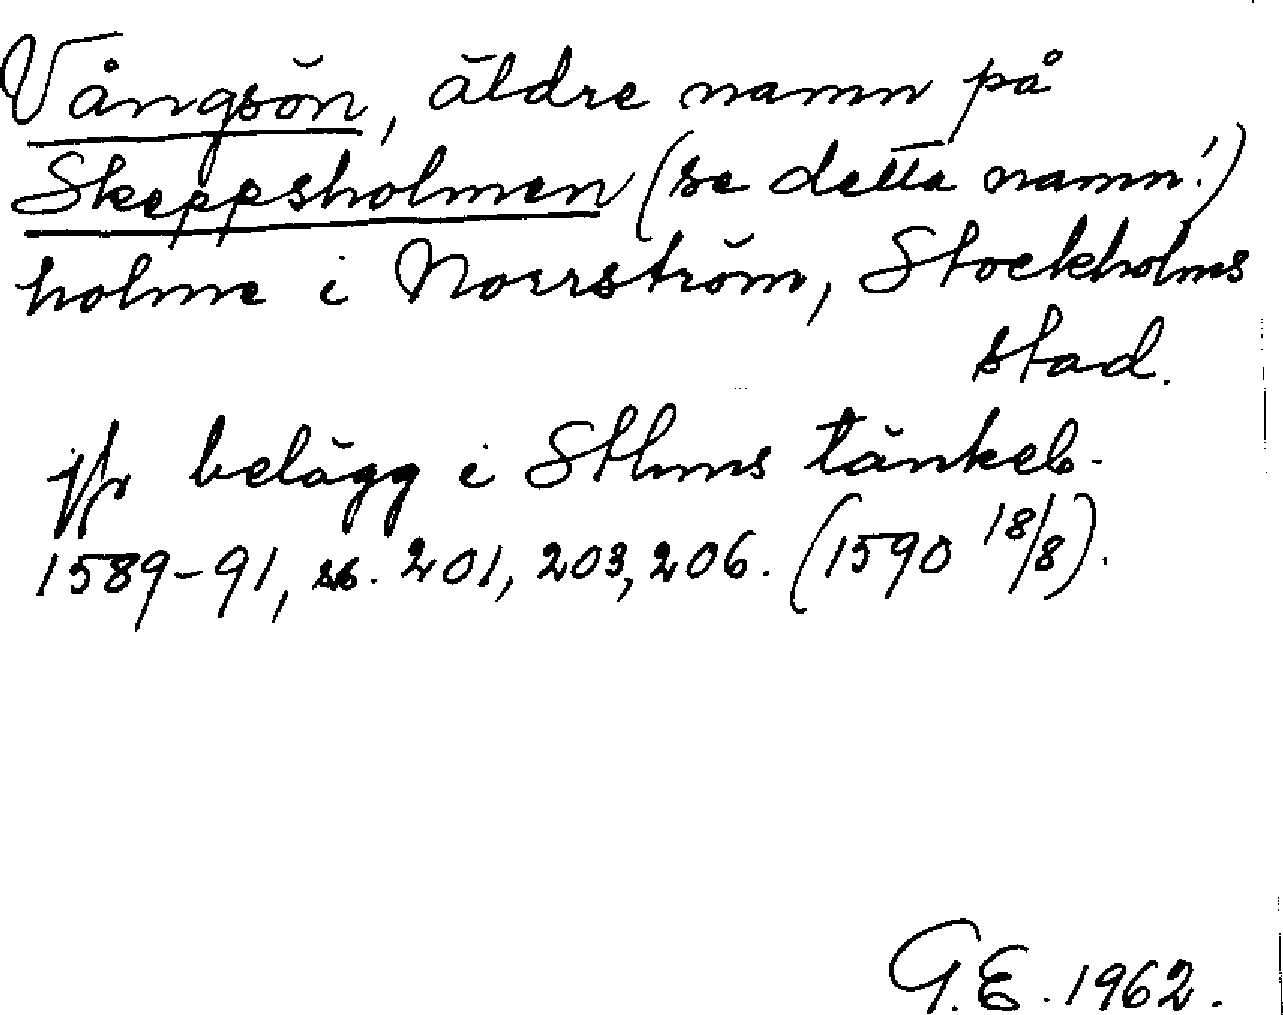 Vångsön, äldre namn på
Skeppsholmen (se detta namn!)
holme i Norrström, Stockholms
stad.
jfr belägg i Sthms tänkeb.
1589-91, ss. 201, 203, 206. (1590 18/8).
G.E. 1962.